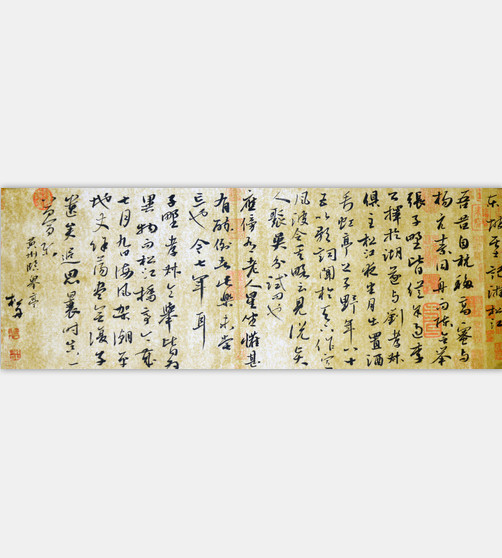 記游松江
吾昔自杭移高密与
杨元素同舟而陈令举
張子野皆從余过李
公择於湖遂与劉孝叔
俱至松江夜半月出置酒
垂虹亭上子野年八十
五以歌詞聞於天下作定
風波令其略云見说贤
人聚吳分试问也
應傍有老人星坐客懽甚
有醉倒者此樂未嘗
忘也今七年耳
子野孝叔令舉皆为
異物而松江橋亭今歲
七月九日海風架潮平
地丈餘荡尽无復孑
遺矣追思曩时真一
夢耳
黄州臨皋亭